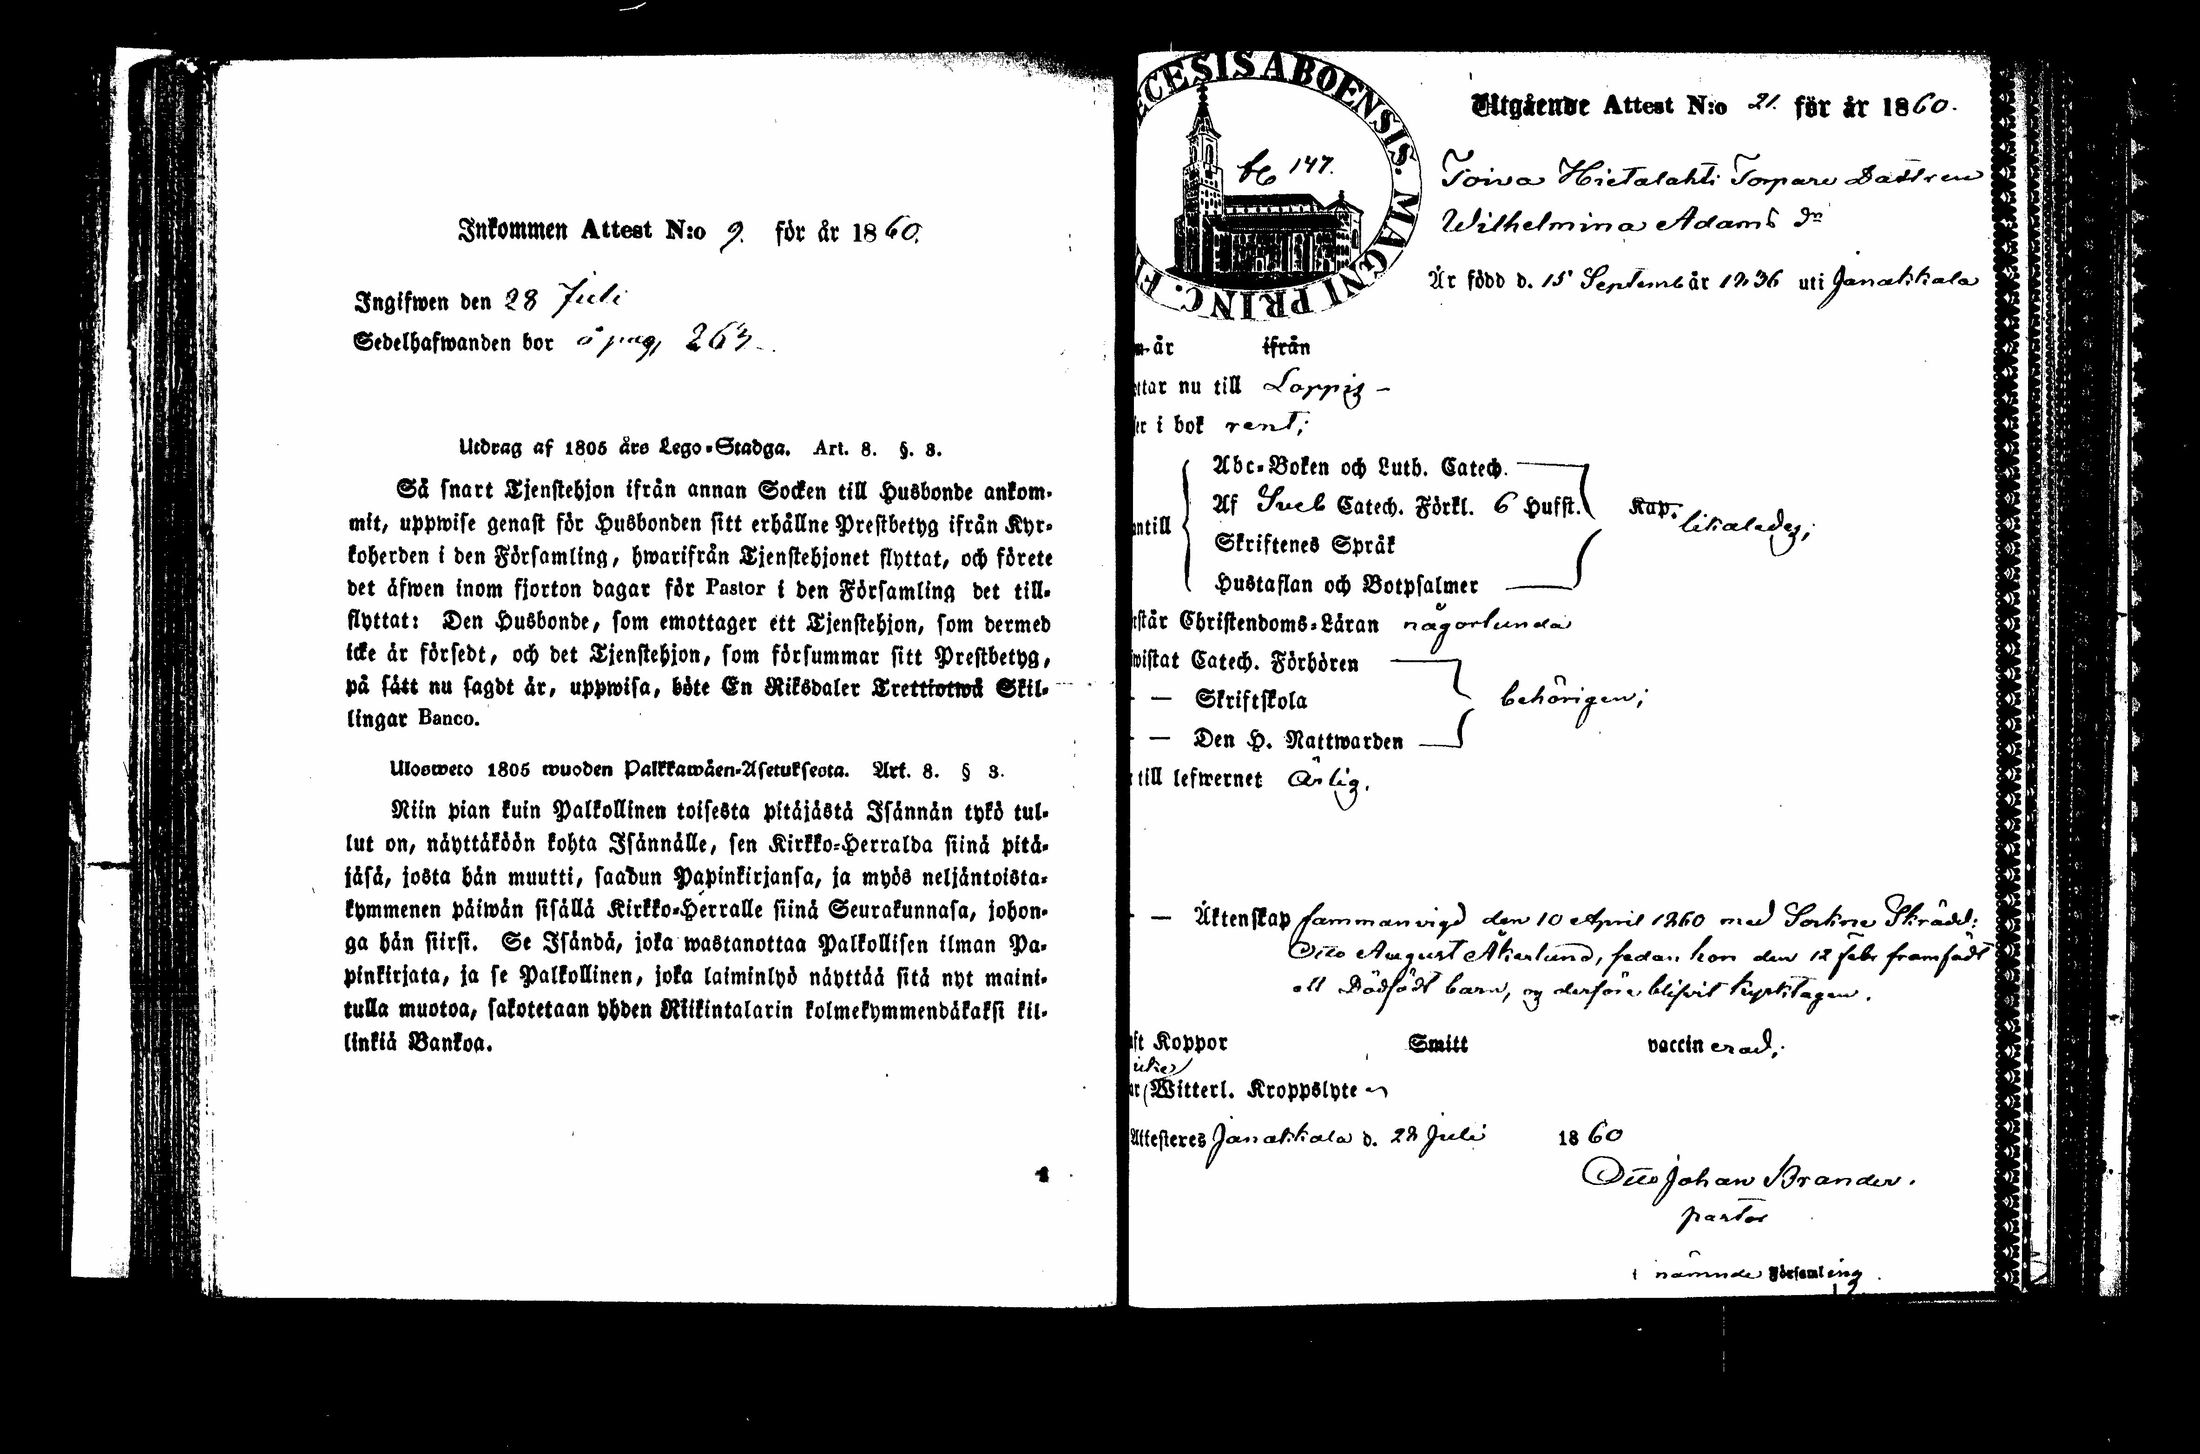 Inkommen Attest N:o 9. för år 1860.
Ingifwen den 28 Juli
Sedelhafwanden bor å pag 263
Utdrag af 1805 års Lego-Stadga. Art. 8. §. 3.
Så snart Tjenstehjon ifrån annan Socken till Husbonde ankom-
mit, uppwise genast för Husbonden sitt erhållne Prestbetyg ifrån Kyr-
koherden i den Församling, hwarifrån Tjenstehjonet flyttat, och förete
det äfwen inom fjorton dagar för Pastor i den Församling det till-
flyttat: Den Husbonde, som emottager ett Tjenstehjon, som dermed
icke är försedt, och det Tjenstehjon, som försummar sitt Prestbetyg,
på sätt nu sagdt är, uppwisa, böte En Riksdaler Trettiotwå Skil-
lingar Banco.
Ulosweto 1805 wuoden Palkkawäen-Asetuksesta. Art. 8. § 3.
Niin pian kuin Palkollinen toisesta pitäjästä Isännän tykö tul-
lut on, näyttäköön kohta Isännälle, sen Kirkko-Herralda siinä pitä-
jäsä, josta hän muutti, saadun Papinkirjansa, ja myös neljäntoista-
kymmenen päiwän sisällä Kirkko-Herralle siinä Seurakunnasa, johon-
ga hän siirsi. Se Isändä, joka wastanottaa Palkollisen ilman Pa-
pinkirjata, ja se Palkollinen, joka laiminlyö näyttää sitä nyt maini-
tulla muotoa, sakotetaan yhden Riikintalarin kolmekymmendäkaksi kil-
linkiä Bankoa.
CESIS ABOENSIS. MAGNI PRINC. F
147.
Utgående Attest N:o 21. för år 1860.
Toiva Hietalahti Torpare Dottren
Wilhelmina Adams dr
Är född d. 15 Septemb år 1836 uti Janakkala
år ifrån
ttar nu till Loppis –
er i bok rent;
Abc-Boken och Luth. Catech.
Af Sveb Catech. Förkl. 6 Hufst. Kap.
likaledes;
ntill
Skriftenes Språk
Hustaflan och Botpsalmer
rstår Christendoms-Läran någorlunda
wistat Catech. Förhören
— Skriftskola behörigen;
— Den H. Nattwarden
till lefwernet Ärlig.
— Äktenskap sammanvigd den 10 April 1860 med Sockne Skrädd:
Otto August Åkerlund, sedan hon den 12 Febr framfödt
ett Dödfödt barn, og derföre blifvit kyrktagen.
ft Koppor Smitt vaccinerad;
icke
ar Witterl. Kroppslyte
Attesteres Janakkala d. 28 Juli 1860
Otto Johan Brander.
pastor
i nämnde Församling